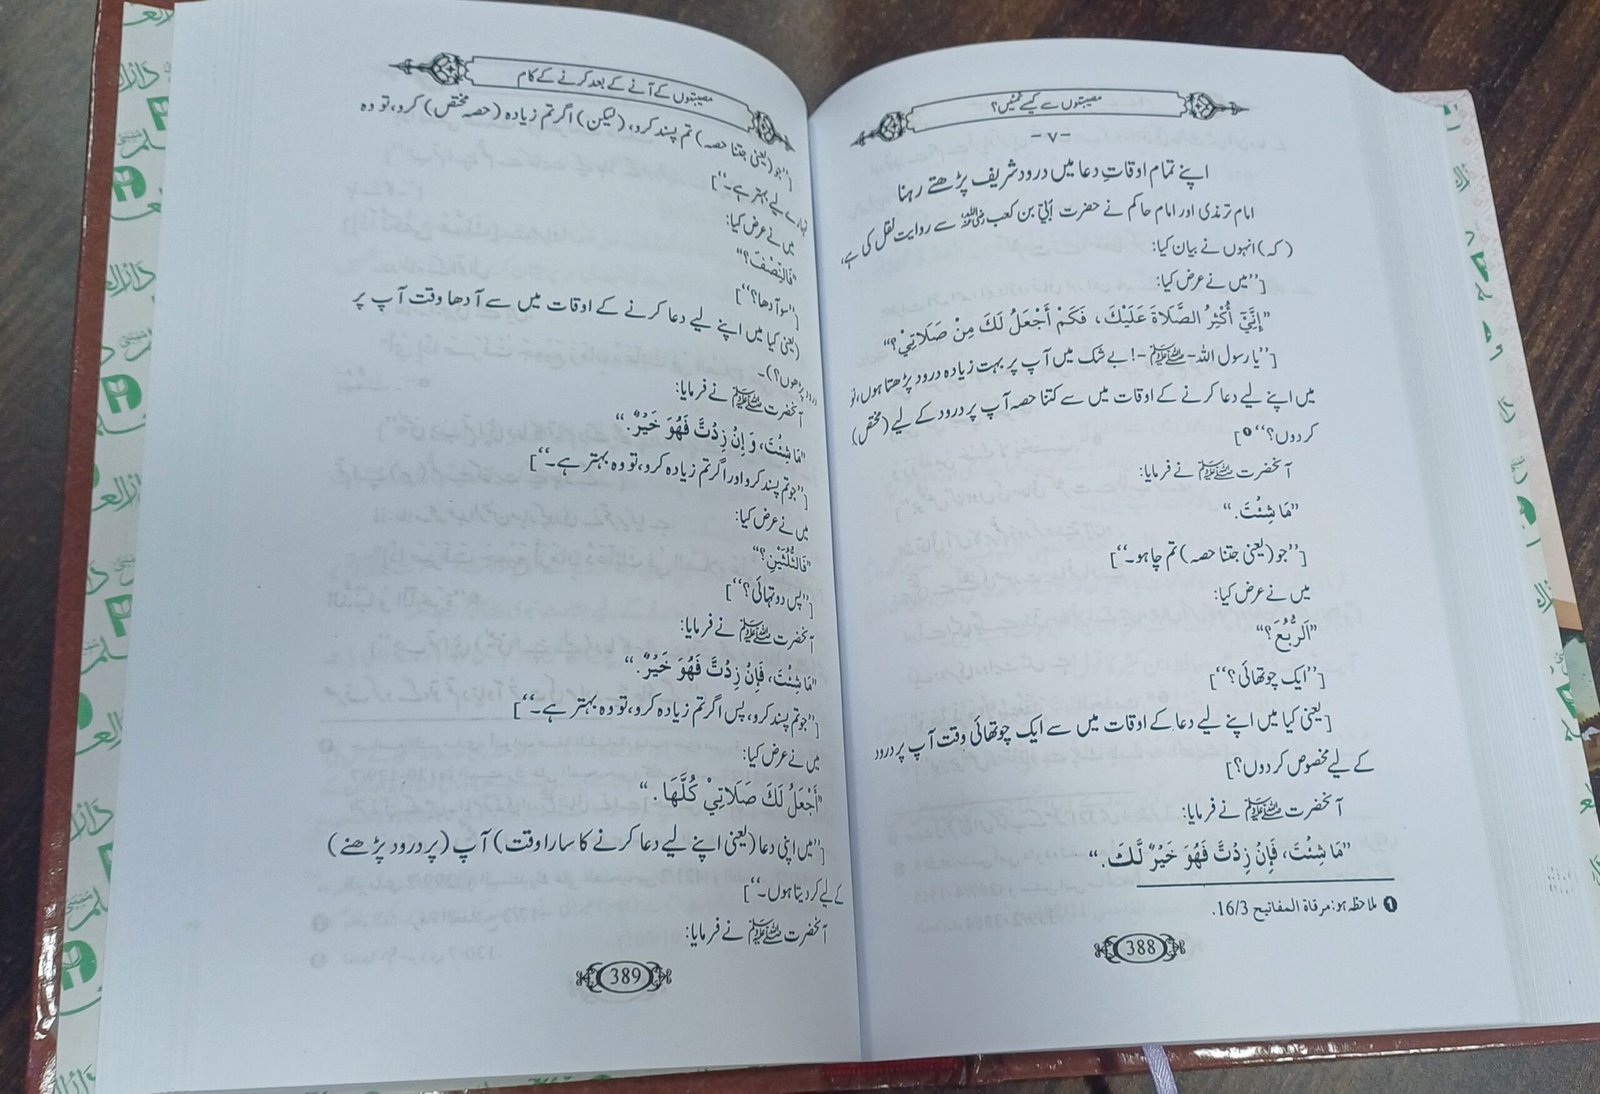 مصیبتوں سے کیسے نمٹیں؟
-۷-
اپنے تمام اوقاتِ دعا میں درود شریف پڑھتے رہنا
امام ترمذی اور امام حاکم نے حضرت اُبیّ بن کعب رضی اللہ عنہ سے روایت نقل کی ہے،
(کہ) انہوں نے بیان کیا:
[’’میں نے عرض کیا:
”إِنِّيْ أُكْثِرُ الصَّلَاةَ عَلَيْكَ، فَكَمْ أَجْعَلُ لَكَ مِنْ صَلَاتِيْ؟“
[’’یا رسول اللہ-ﷺ-! بے شک میں آپ پر بہت زیادہ درود پڑھتا ہوں، تو
میں اپنے لیے دعا کرنے کے اوقات میں سے کتنا حصہ آپ پر درود کے لیے (مختص)
کر دوں؟‘‘❶]
آنحضرت ﷺ نے فرمایا:
”مَا شِئْتَ.“
[’’جو (یعنی جتنا حصہ) تم چاہو۔‘‘]
میں نے عرض کیا:
”اَلرُّبُعَ؟“
[’’ایک چوتھائی؟‘‘]
[یعنی کیا میں اپنے لیے دعا کے اوقات میں سے ایک چوتھائی وقت آپ پر درود
کے لیے مخصوص کر دوں؟]
آنحضرت ﷺ نے فرمایا:
”مَا شِئْتَ، فَإِنْ زِدْتَّ فَهُوَ خَيْرٌ لَّكَ.“
❶ ملاحظہ ہو: مرقاة المفاتيح 16/3.
388
مصیبتوں کے آنے کے بعد کرنے کے کام
[’’جو (یعنی جتنا حصہ) تم پسند کرو، (لیکن) اگر تم زیادہ (حصہ مختص) کرو، تو وہ
تمہارے لیے بہتر ہے۔‘‘]
میں نے عرض کیا:
”فَالنِّصْفَ؟“
[’’سو آدھا؟‘‘]
(یعنی کیا میں اپنے لیے دعا کرنے کے اوقات میں سے آدھا وقت آپ پر
درود پڑھوں؟)۔
آنحضرت ﷺ نے فرمایا:
”مَا شِئْتَ، وَإِنْ زِدْتَّ فَهُوَ خَيْرٌ.“
[’’جو تم پسند کرو اور اگر تم زیادہ کرو، تو وہ بہتر ہے۔‘‘]
میں نے عرض کیا:
”فَالثُّلُثَيْنِ؟“
[’’پس دو تہائی؟‘‘]
آنحضرت ﷺ نے فرمایا:
”مَا شِئْتَ، فَإِنْ زِدْتَّ فَهُوَ خَيْرٌ.“
[’’جو تم پسند کرو، پس اگر تم زیادہ کرو، تو وہ بہتر ہے۔‘‘]
میں نے عرض کیا:
”أَجْعَلُ لَكَ صَلَاتِيْ كُلَّهَا.“
[’’میں اپنی دعا (یعنی اپنے لیے دعا کرنے کا سارا وقت) آپ (پر درود پڑھنے)
کے لیے کر دیتا ہوں۔‘‘]
آنحضرت ﷺ نے فرمایا:
389